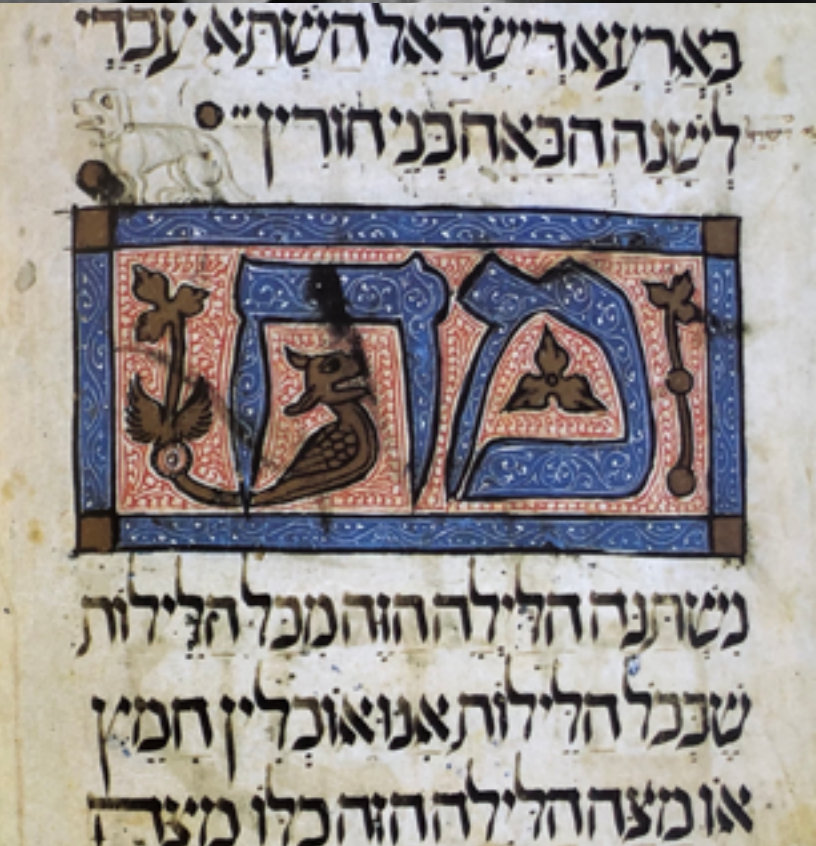 בְּאַרְעָא דְיִשְׂרָאֵל הָשַׁתָּא עַבְדֵי
לְשָׁנָה הַבָּאָה בְּנֵי חוֹרִין
מה
נִשְׁתַּנָּה הַלַּיְלָה הַזֶּה מִכָּל הַלֵּילוֹת
שֶׁבְּכָל הַלֵּילוֹת אָנוּ אוֹכְלִין חָמֵץ
אוֹ מַצָּה הַלַּיְלָה הַזֶּה כֻּלּוֹ מַצָּה